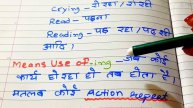 Crying - रो रहा / रो रही
Read - पढ़ना
Reading - पढ़ रहा / पढ़ रही
आदि ।
Means Use of -ing जब कोई
कार्य हो रहा हो तब होता है ।
मतलब कोई Action Repeat